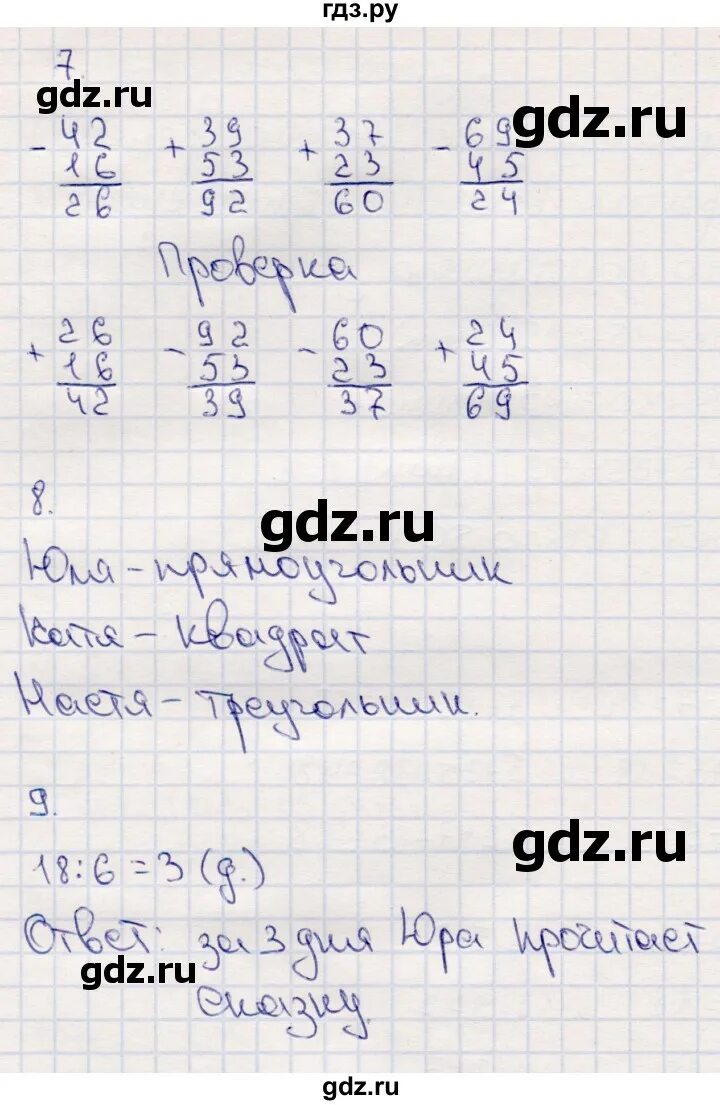 гдз.ру
7
gdz.ru
gdz.ru
- 42 + 39 + 37 - 69
16 53 23 45
26 92 60 24
Проверка
+ 26 - 92 - 60 + 24
16 53 23 45
42 39 37 69
8.
gdz.ru
Юля - прямоугольник
Катя - квадрат
Настя - треугольник.
9.
gdz.ru
18:6=3 (д.)
Ответ: за 3 дня Юра прочитает
gdz.ru
сказку.
gdz.ru